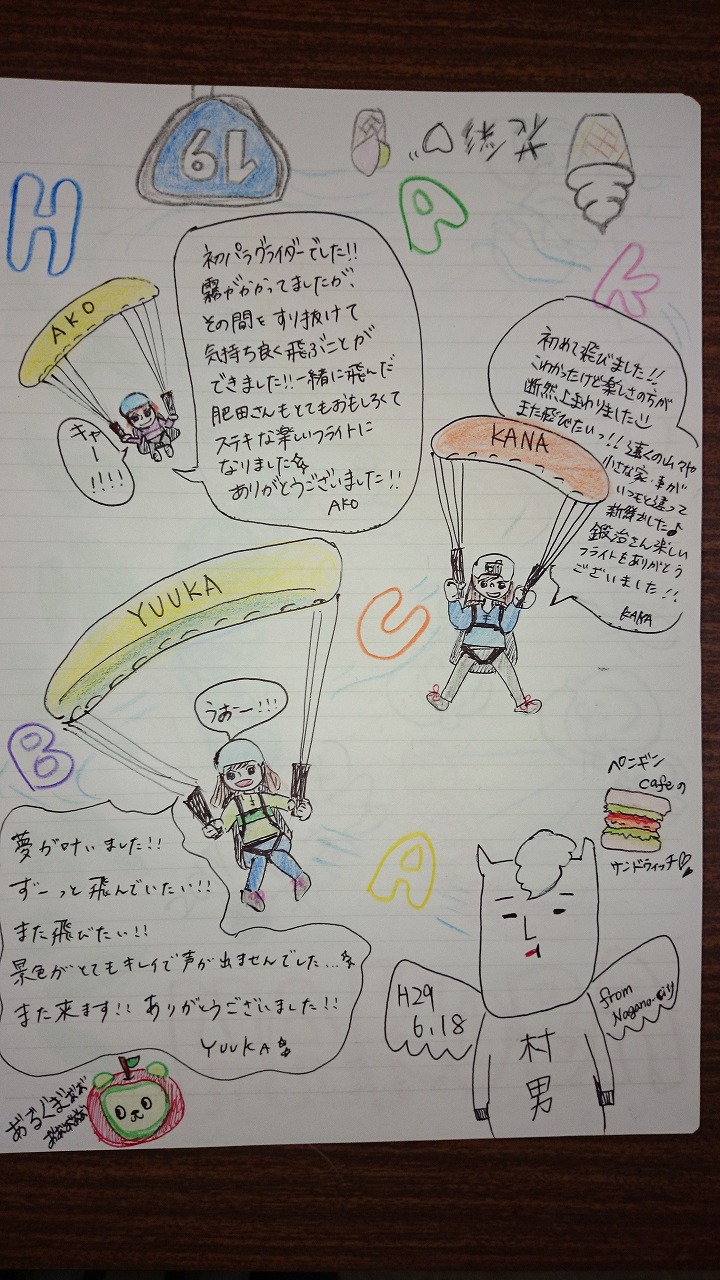 19
花彩サ♡
H
A
K
U
B
A
初パラグライダーでした!!
霧がかかってましたが、
その間をすり抜けて
気持ち良く飛ぶことが
できました!!一緒に飛んだ
肥田さんもとてもおもしろくて
ステキな楽しいフライトに
なりました☆
ありがとうございました!!
AKO
AKO
キャー
!!!!
初めて飛びました!!
こわかったけど楽しさの方が
断然上まわりました
また飛びたいっ!!遠くの山々や
小さな家・車が
いつもと違って
新鮮でした♪
鍛治さん楽しい
フライトをありがとう
ございました!!
KANA
KANA
YUUKA
うおー!!!
夢が叶いました!!
ずーっと飛んでいたい!!
また飛びたい!!
景色がとてもキレイで声が出ませんでした…☆
また来ます!!ありがとうございました!!
YUUKA☆
ペンギン
cafeの
サンドウィッチ♡
H29
6.18
from
Nagano-city
村
男
あるくまぉぉ